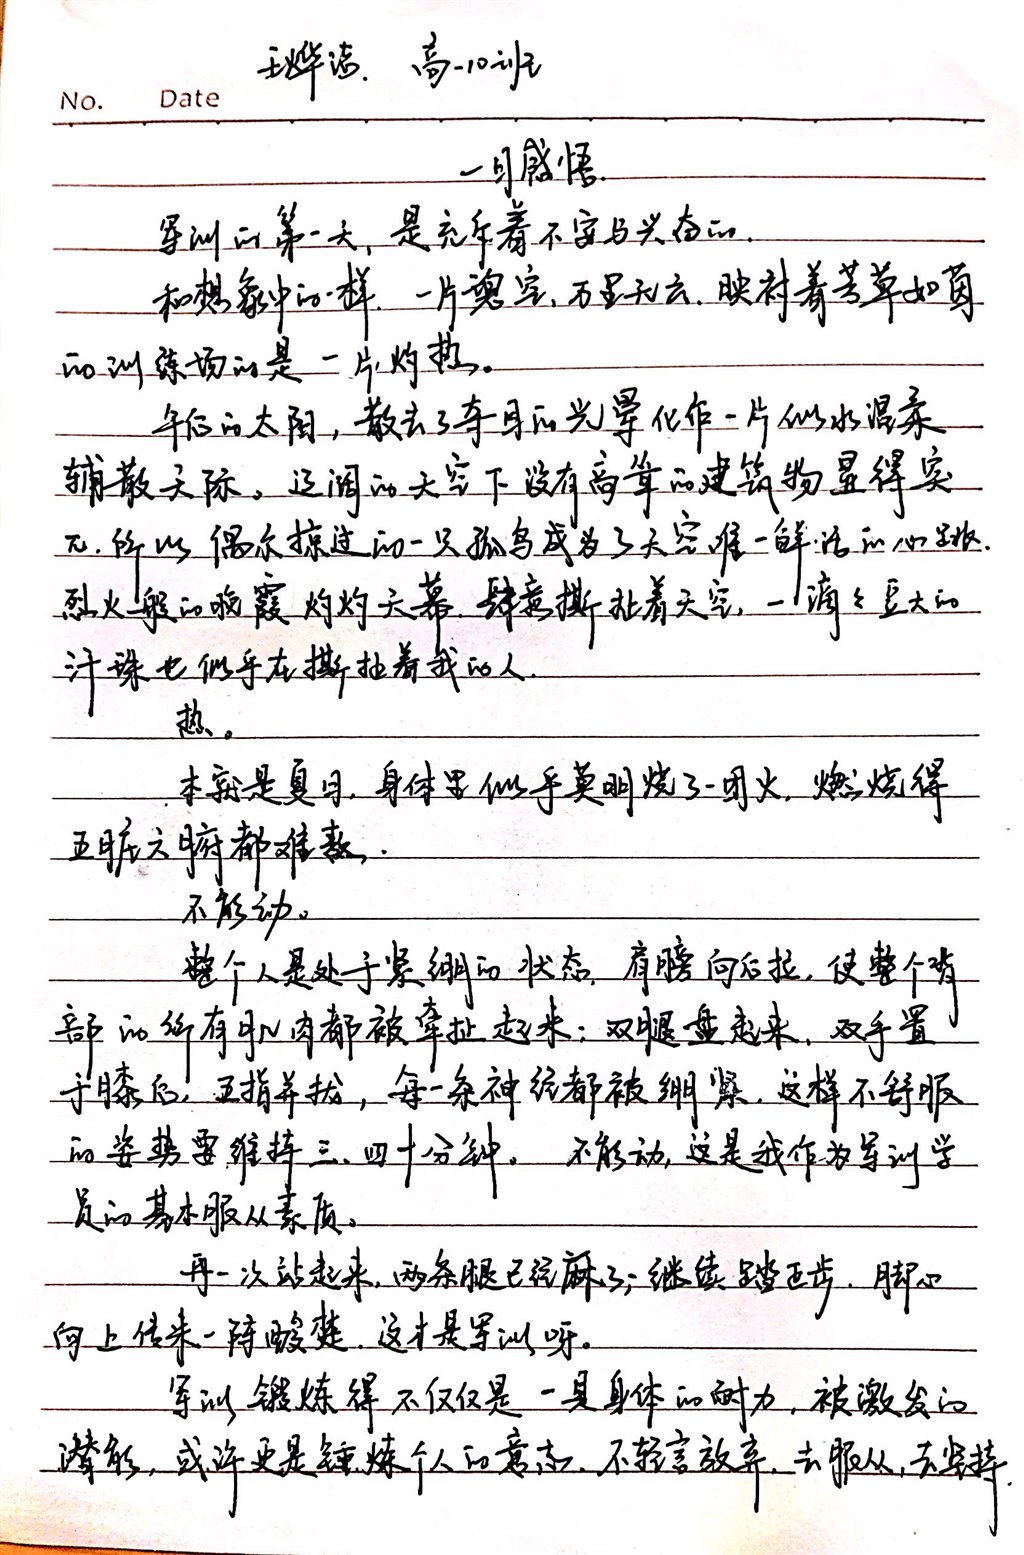 王烨涛. 高一10班
No. Date
一日感悟.
军训的第一天，是充斥着不安与兴奋的.
和想象中的一样. 一片碧空，万里无云. 映衬着芳草如茵
的训练场的是一片灼热。
午后的太阳，散去了夺目的光晕化作一片似水温柔
铺散天际。辽阔的天空下没有高耸的建筑物显得突
兀. 所以偶尔掠过的一只孤鸟成为了天空唯一鲜活的心跳.
烈火般的晚霞灼灼天幕. 肆意撕扯着天空，一滴々豆大的
汗珠也似乎在撕扯着我的人.
热。
本就是夏日，身体里似乎莫明烧了一团火，燃烧得
五脏六腑都难熬.
不能动。
整个人是处于紧绷的状态，肩膀向后拉，使整个背
部的所有肌肉都被牵扯起来；双腿盘起来，双手置
于膝后，五指并拢，每一条神经都被绷紧. 这样不舒服
的姿势要维持三、四十分钟。不能动，这是我作为军训学
员的基本服从素质。
再一次站起来，两条腿已经麻了；继续踏正步. 脚心
向上传来一阵酸楚. 这才是军训呀。
军训锻炼得不仅仅是一具身体的耐力，被激发的
潜能，或许更是锤炼个人的意志. 不轻言放弃，去服从，去坚持.